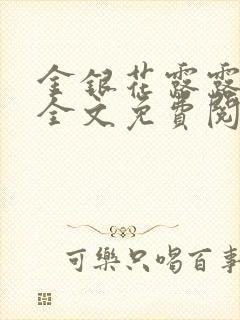 金銀花露露
全文免費閱
可樂只喝百事